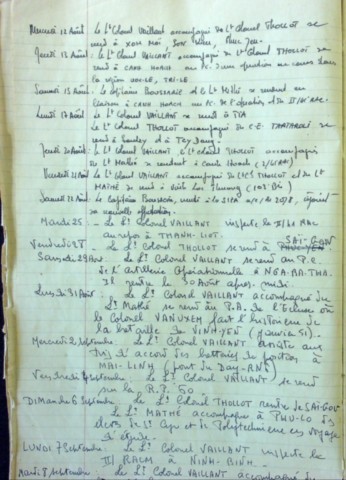 Mercredi 12 Août Le Lt Colonel Vaillant accompagné du Lt Colonel THOLLOT se
rend à XOM MOI
Jeudi 13 Août : Le Lt Colonel VAILLANT accompagné du Lt Colonel THOLLOT se
rend à CANH HOACH au P.C. d'une opération en cours dans
la région
Samedi 15 Août. Le Capitaine et le Lt Mathé se rendent en
liaison à CANH HOACH au P.C. de l'opération
Lundi 17 Août Le Lt Colonel VAILLANT se rend à
Le Lt Colonel THOLLOT accompagné du C.E.
rend à et à
Jeudi 20 Août : Le Lt Colonel VAILLANT le Lt Colonel THOLLOT accompagnés
du Lt Mathé se rendent à Canh Hoach
Vendredi 21 Août Le Lt Colonel VAILLANT accompagné du et du Lt
MATHÉ se rend à
Samedi 22 Août le Capitaine
sa nouvelle affectation.
Mardi 25 - Le Lt Colonel VAILLANT inspecte le II/ RAC
au à THANH-LIOT.
Vendredi 28 - Le Lt Colonel THOLLOT se rend à SAI-GON
Samedi 29 Août. Le Lt Colonel VAILLANT se rend au P.C.
de l'Artillerie Opérationnelle à NGA-BA-THA.
Il rentre le 30 Août après-midi
Lundi 31 Août : Le Lt Colonel VAILLANT accompagné du
Lt Mathé se rend au P.A. de l'Éclume où
le Colonel VANUXEM fait l'historique de
la bataille de VINH-YEN (Janvier 51).
Mercredi 2 Septembre Le Lt Colonel VAILLANT assiste aux
tirs d'accord des batteries en position à
MAI-LINH (pont du Day-RN6)
Vendredi 4 Septembre. Le Lt Colonel VAILLANT se rend
sur la R.P. 50
DIMANCHE 6 Septembre Le Lt Colonel THOLLOT rentre de SAI-GON
Le Lt MATHÉ accompagne à PHU-LO des
élèves de St Cyr et de Polytechnique en voyage
d'étude.
LUNDI 7 Septembre. Le Lt Colonel VAILLANT inspecte le
II/ RACM à NINH-BINH.
Mardi 8 Septembre. Le Lt Colonel VAILLANT accompagné du